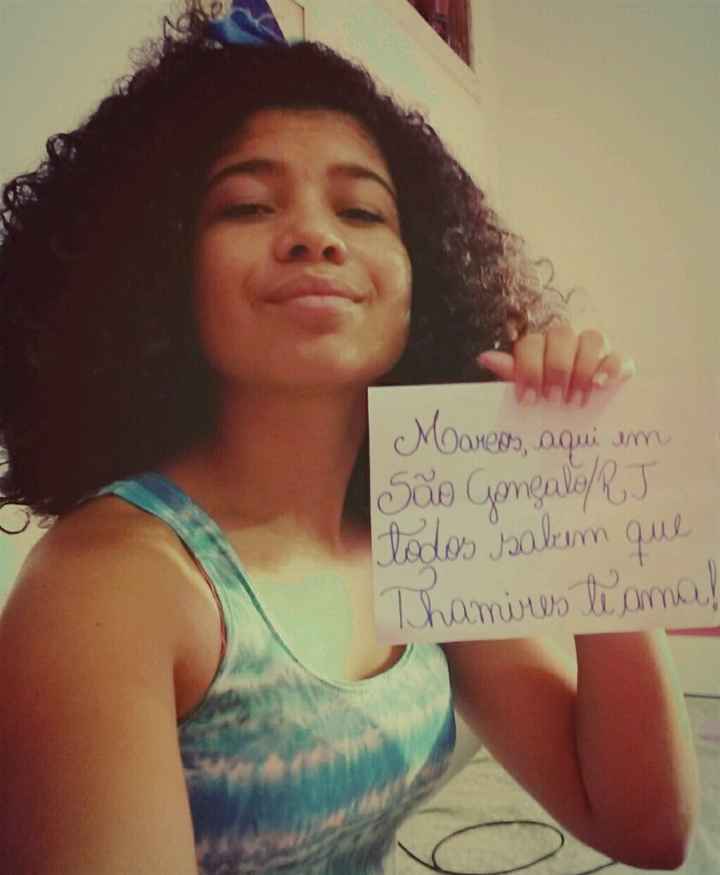 Marcos, aqui em
São Gonçalo/RJ
todos sabem que
Thamires te ama!